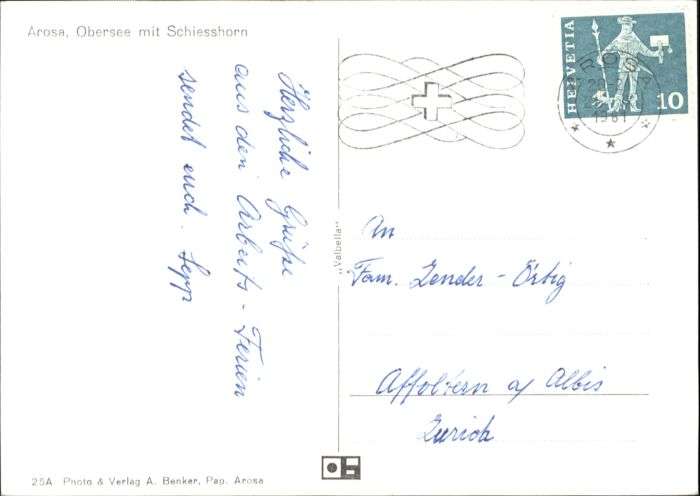 Arosa, Obersee mit Schiesshorn
Herzliche Grüße
aus den Arbeits-Ferien
sendet euch. Sepp
HELVETIA
10
AROSA
1961
„Valbella"
An
Fam. Zender-Örbig
Affoltern a/ Albis
Zürich
25A Photo & Verlag A. Benker, Pap. Arosa